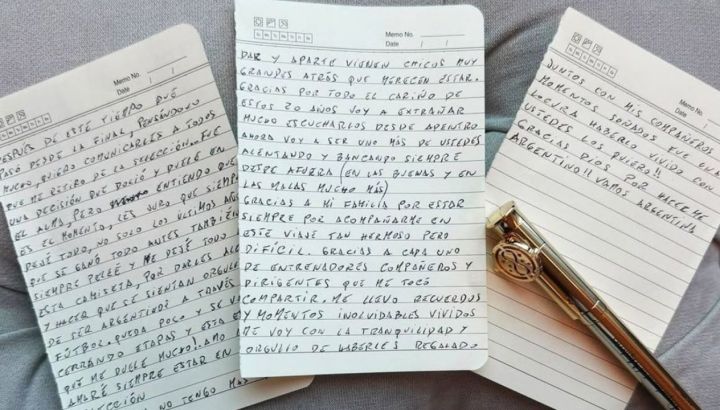 Memo No.
Date / /
DESPUES DE ESTE TIEMPO QUE
PASÓ DESDE LA FINAL, PENSÁNDOLO
MUCHO, QUIERO COMUNICARLES A TODOS
QUE ME RETIRO DE LA SELECCIÓN. FUE
UNA DECISIÓN QUE DOLIÓ Y DUELE EN
EL ALMA, PERO ENTIENDO QUE
ES EL MOMENTO, LES JURO QUE SIEMPRE
DEJÉ TODO, NO SOLO LOS ÚLTIMOS AÑOS
QUE SE GANÓ TODO ANTES TAMBIÉN
SIEMPRE PELEÉ Y ME DEJÉ TODO
ESTA CAMISETA, POR DARLES ALE
Y HACER QUE SE SIENTAN ORGULLO
DE SER ARGENTINOS A TRAVÉS
FÚTBOL. QUEDA POCO Y SE VA
CERRANDO ETAPAS Y ESTA ES
QUE ME DUELE MUCHO. AMO
AMARÉ SIEMPRE ESTAR EN
LECCIÓN NO TENGO MAS
Memo No.
Date / /
DAR Y APARTE VIENEN CHICOS MUY
GRANDES ATRÁS QUE MERECEN ESTAR.
GRACIAS POR TODO EL CARIÑO DE
ESTOS 20 AÑOS VOY A EXTRAÑAR
MUCHO ESCUCHARLOS DESDE ADENTRO
AHORA VOY A SER UNO MÁS DE USTEDES
ALENTANDO Y BANCANDO SIEMPRE
DESDE AFUERA (EN LAS BUENAS Y EN
LAS MALAS MUCHO MÁS)
GRACIAS A MI FAMILIA POR ESTAR
SIEMPRE POR ACOMPAÑARME EN
ESTE VIAJE TAN HERMOSO PERO
DIFÍCIL. GRACIAS A CADA UNO
DE ENTRENADORES COMPAÑEROS Y
DIRIGENTES QUE ME TOCÓ
COMPARTIR. ME LLEVO RECUERDOS
Y MOMENTOS INOLVIDABLES VIVIDOS
ME VOY CON LA TRANQUILIDAD Y
ORGULLO DE HABERLES REGALADO
Memo No.
Date / /
JUNTOS CON MIS COMPAÑEROS
MOMENTOS SOÑADOS FUE UNA
LOCURA HABERLO VIVIDO CON
USTEDES LOS QUIERO!!
GRACIAS DIOS POR HACERME
ARGENTINO!! VAMOS ARGENTINA